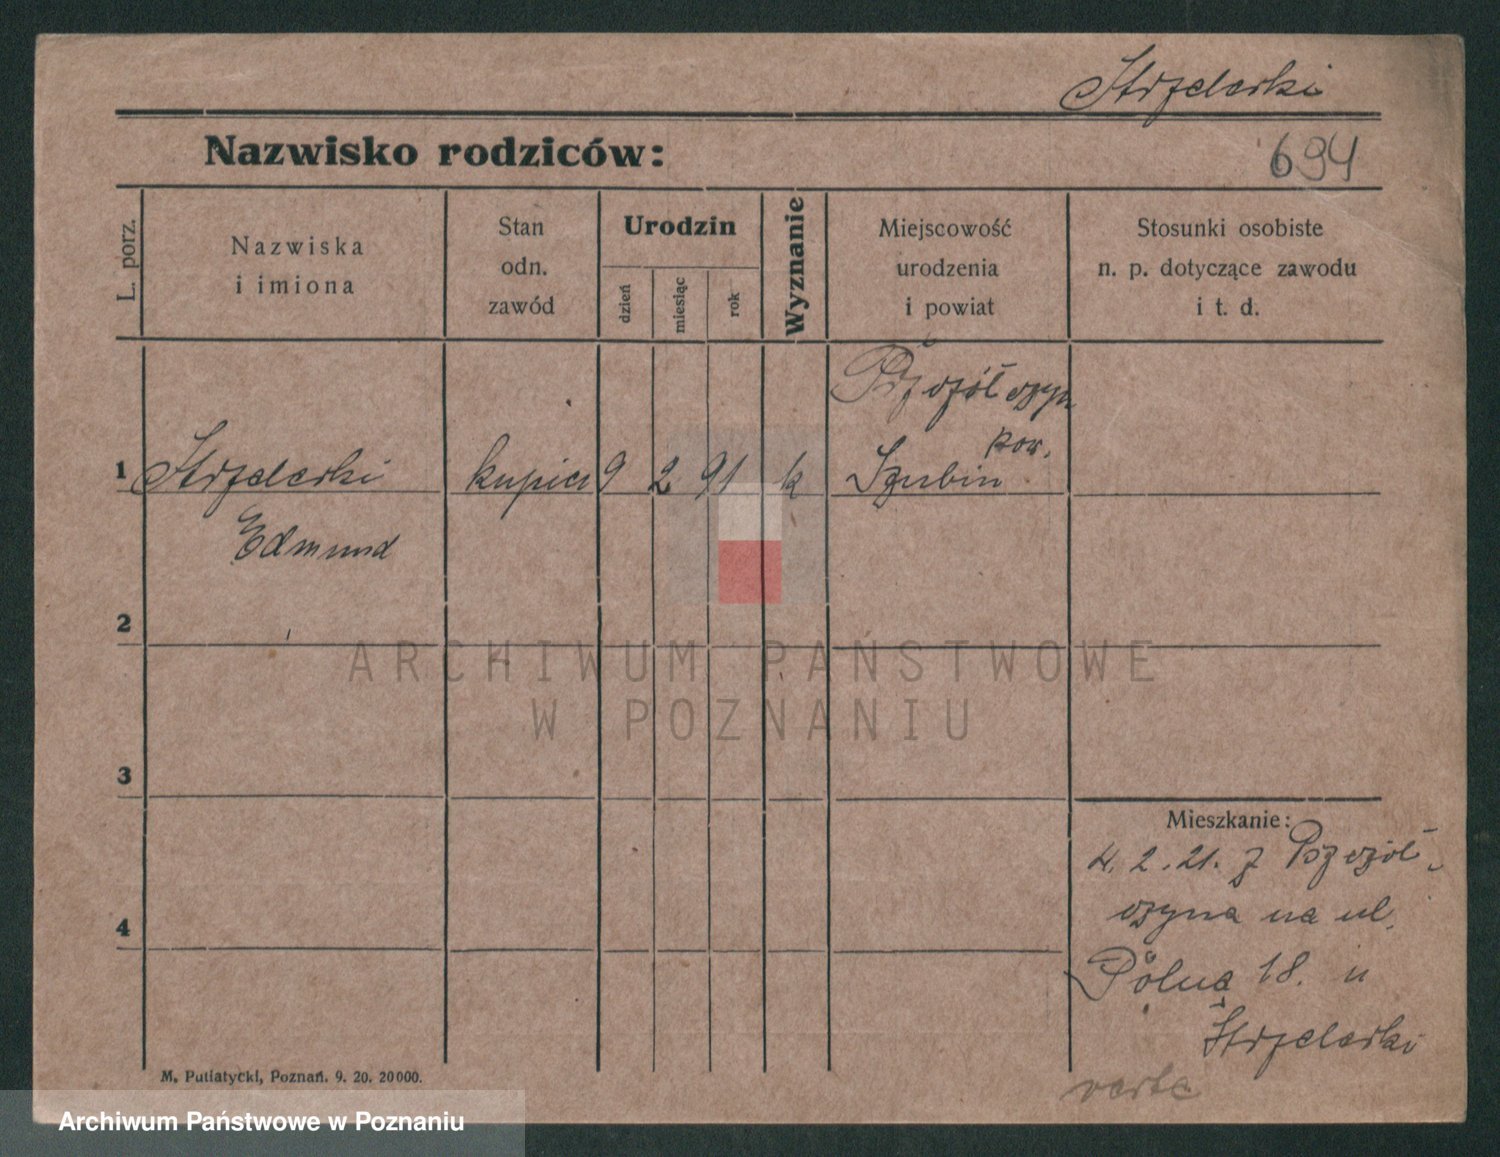 Strzelecki
Nazwisko rodziców:
694
L. porz.
Nazwiska
i imiona
Stan
odn.
zawód
Urodzin
dzień
miesiąc
rok
Wyznanie
Miejscowość
urodzenia
i powiat
Stosunki osobiste
n. p. dotyczące zawodu
i t. d.
1
Strzelecki
Edmund
kupiec
9
2
91
k
Pszczółczyn
pow.
Szubin
2
3
4
ARCHIWUM PAŃSTWOWE
W POZNANIU
Mieszkanie:
4. 2. 21. z Pszczół-
czyna na ul.
Polną 18. u
Strzelecki
verte
M. Putiatycki, Poznań. 9. 20. 20000.
Archiwum Państwowe w Poznaniu